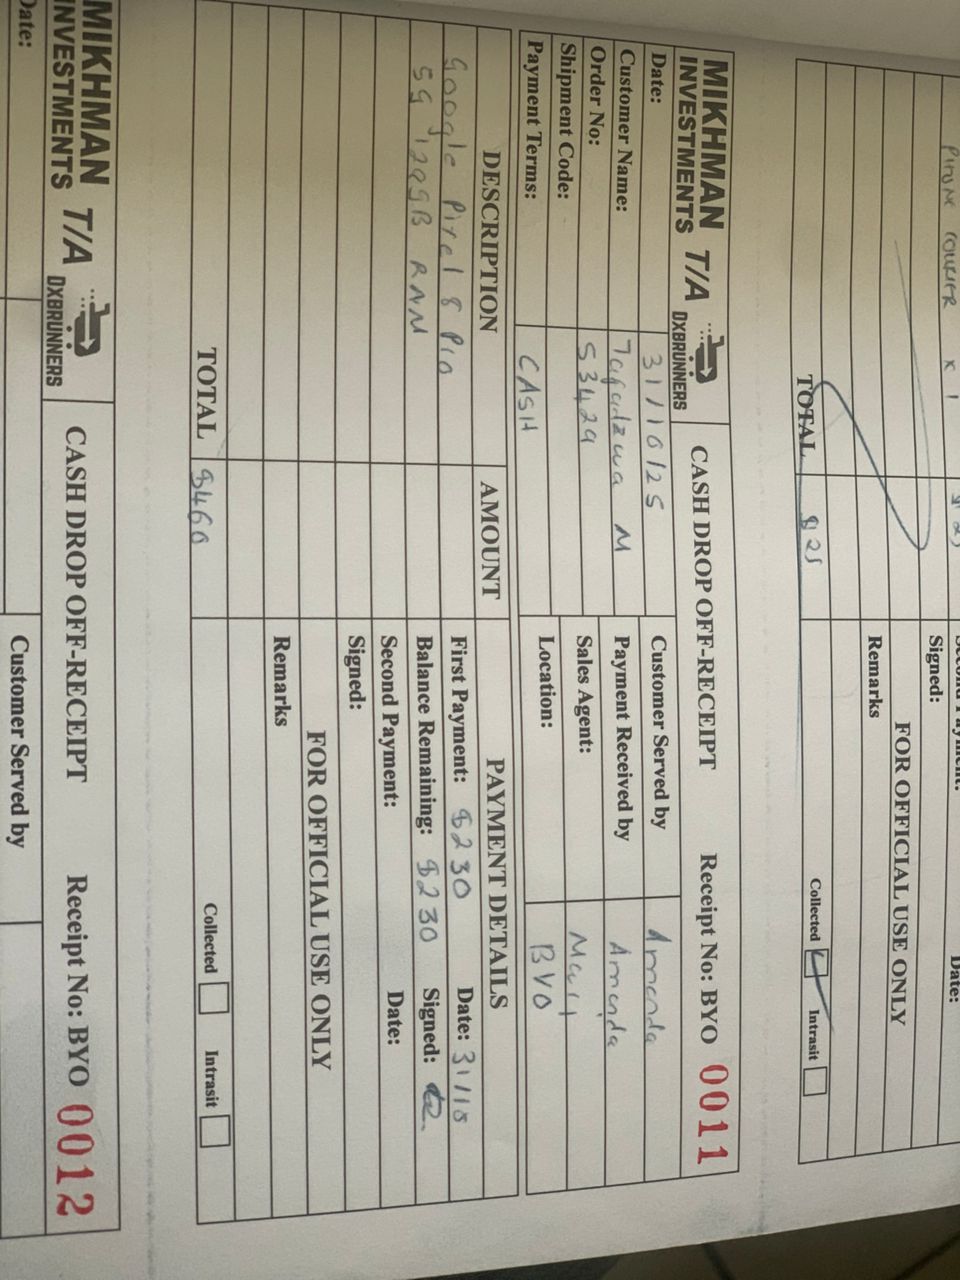 PHONE COURIER x 1
TOTAL $25
Signed:
Date:
FOR OFFICIAL USE ONLY
Remarks
Collected Intrasit
MIKHMAN INVESTMENTS T/A DXBRUNNERS CASH DROP OFF-RECEIPT Receipt No: BYO 0011
Date: 31/10/25 Customer Served by Amanda
Customer Name: Tafadzwa M Payment Received by Amanda
Order No: S3429 Sales Agent:
Shipment Code: Location: BYO
Payment Terms: CASH
DESCRIPTION AMOUNT PAYMENT DETAILS
Google Pixel 8 Pro First Payment: $230 Date: 31/10
5G 128GB Balance Remaining: $230 Signed:
Second Payment: Date:
Signed:
FOR OFFICIAL USE ONLY
Remarks
TOTAL $460 Collected Intrasit
MIKHMAN INVESTMENTS T/A DXBRUNNERS CASH DROP OFF-RECEIPT Receipt No: BYO 0012
Date: Customer Served by